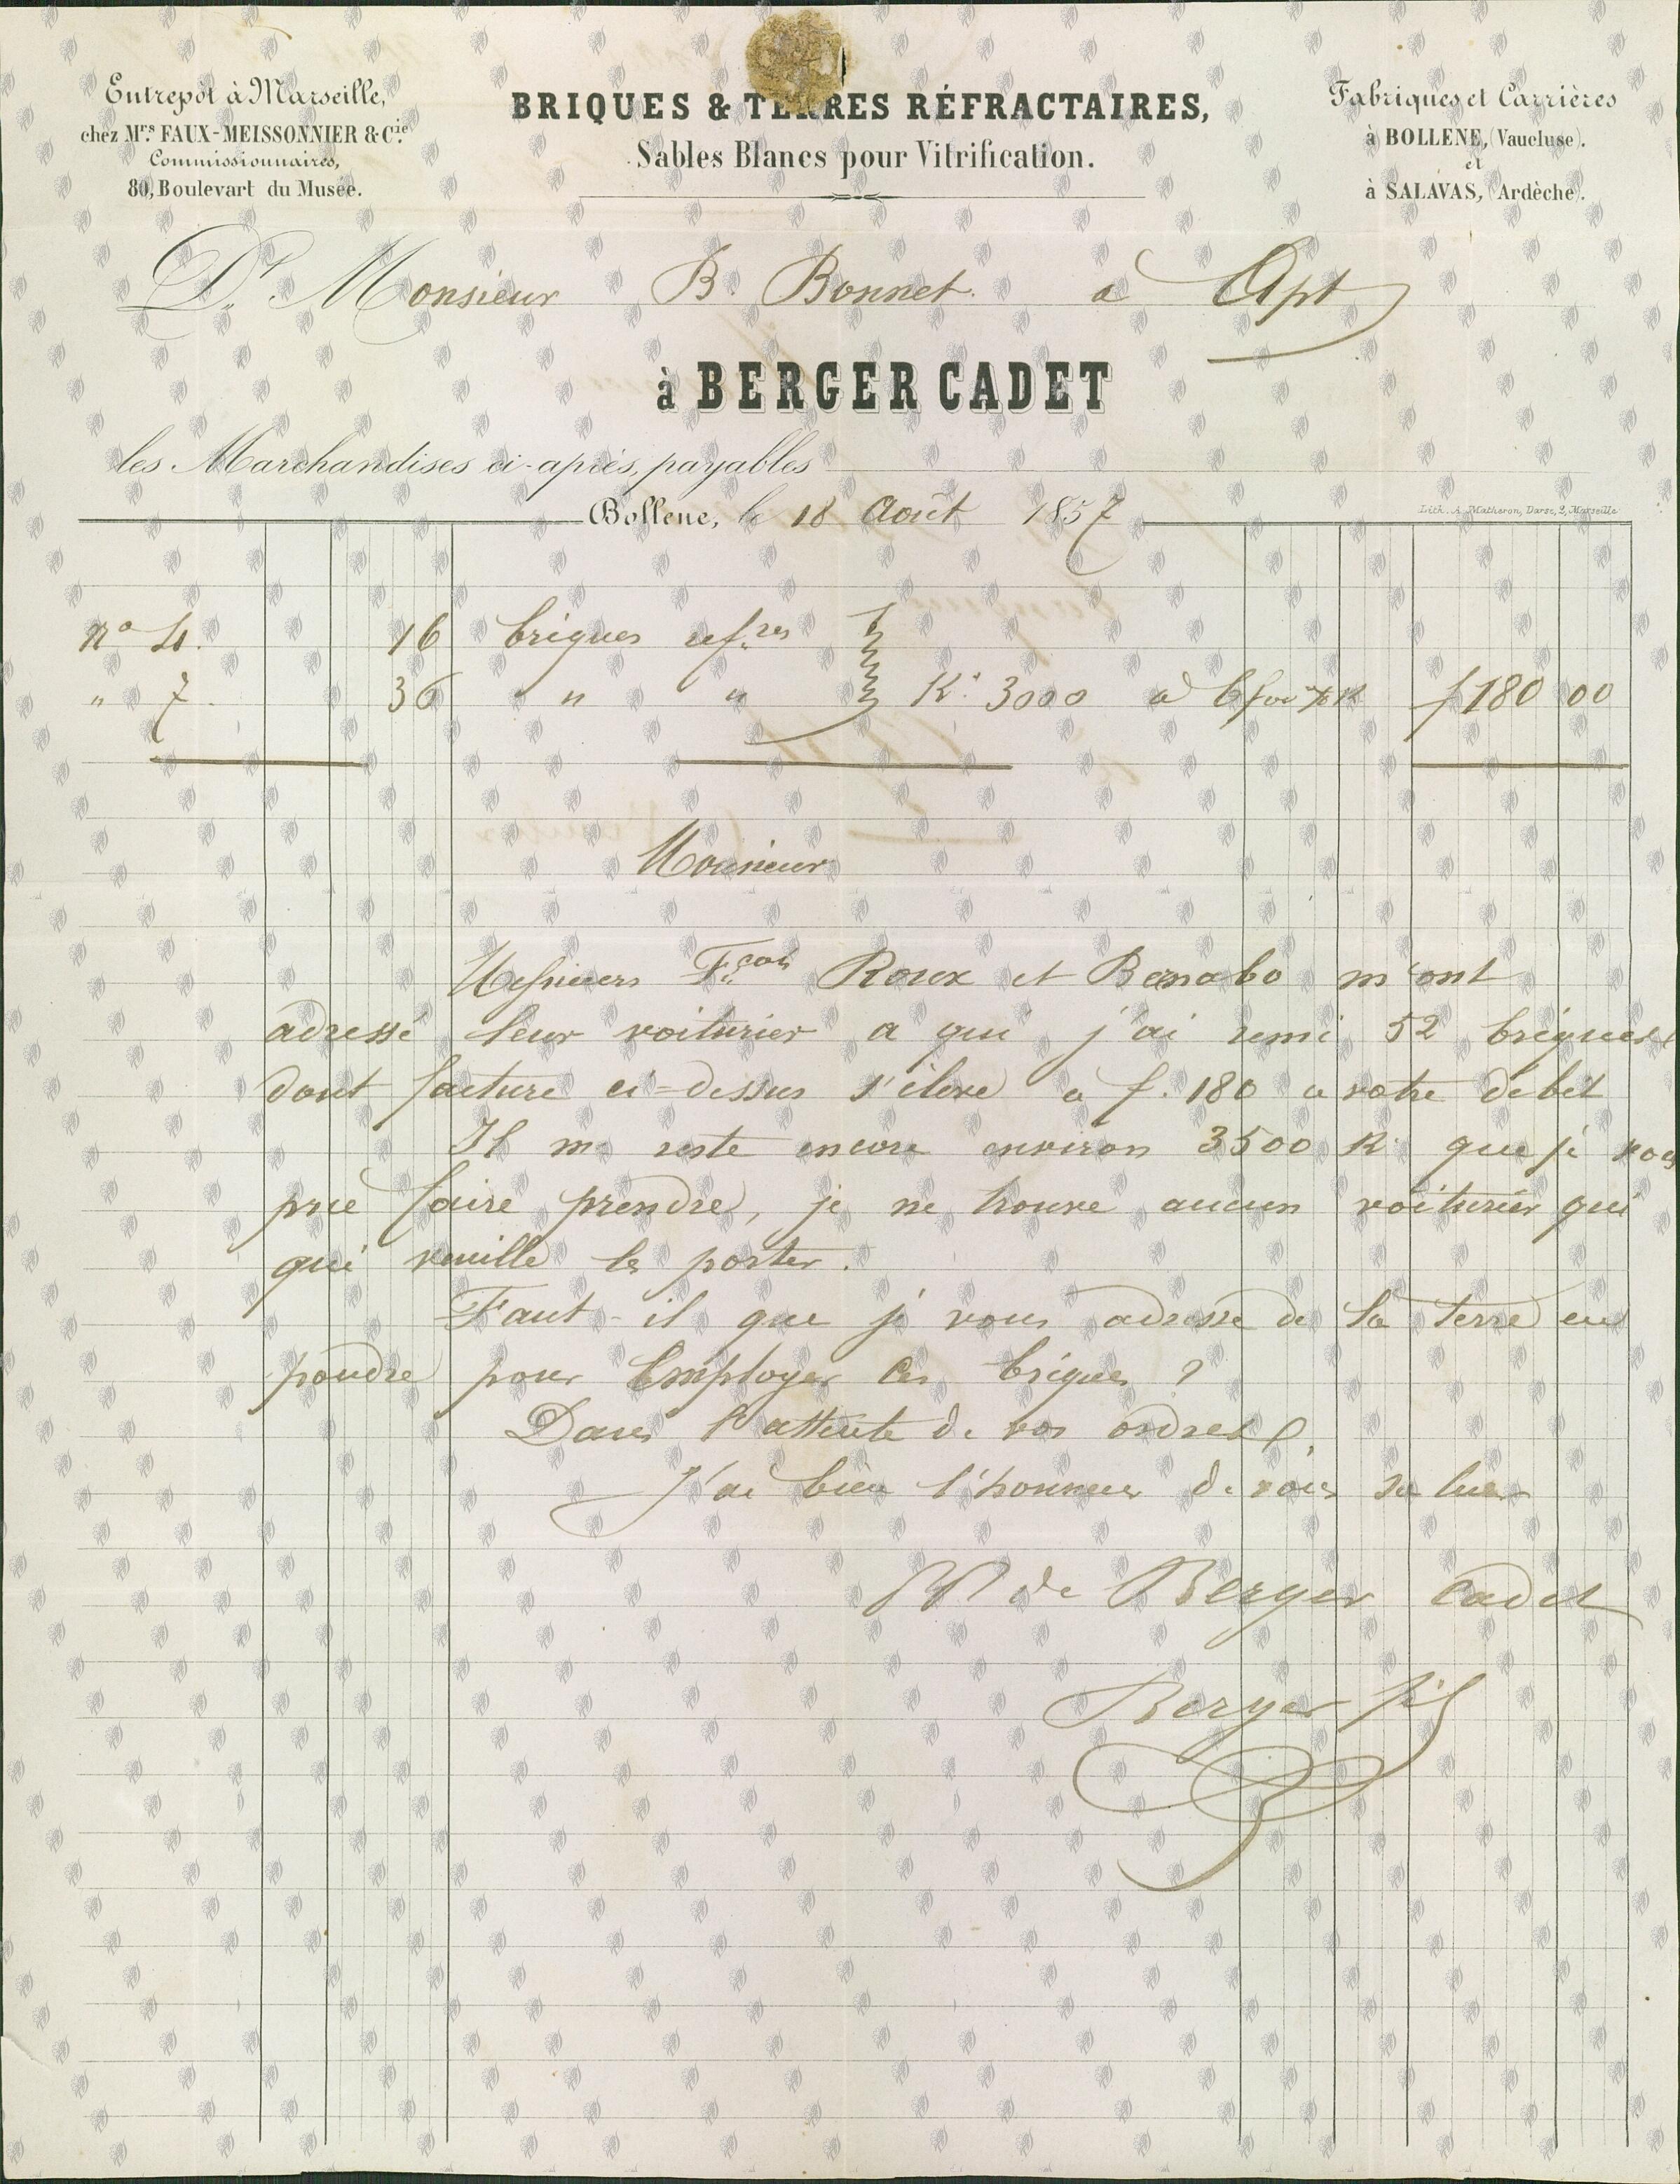 Entrepôt à Marseille,
chez Mrs. FAUX-MEISSONNIER & Cie.
Commissionnaires,
80, Boulevart du Musée.
BRIQUES & TERRES RÉFRACTAIRES,
Sables Blancs pour Vitrification.
Fabriques et Carrières
à BOLLENE, (Vaucluse).
et
à SALAVAS, (Ardèche).
Dt. Monsieur B. Bonnet. a Apt
à BERGER CADET
les Marchandises ci-après, payables
Bollene, le 18 Août 1857
Lith. A. Matheron, Darse, 2, Marseille
no 4. 16 briques refres
" 7. 36 " " " K. 3000 a 6f % K f 180 00
Monsieur
Messieurs Fcois Roux et Barnabo m'ont
adressé leur voiturier a qui j'ai remi 52 briques
dont facture ci=dessus s'élève a f. 180 a votre debet
Il me reste encore environ 3500 K. que je vous
prie faire prendre, je ne trouve aucun voiturier qui
qui veuille les porter.
Faut-il que je vous adresse de la terre en
poudre pour Employer ces briques ?
Dans l'attente de vos ordres,
J'ai bien l'honneur de vous saluer
de Berger Cadet
Berger fils